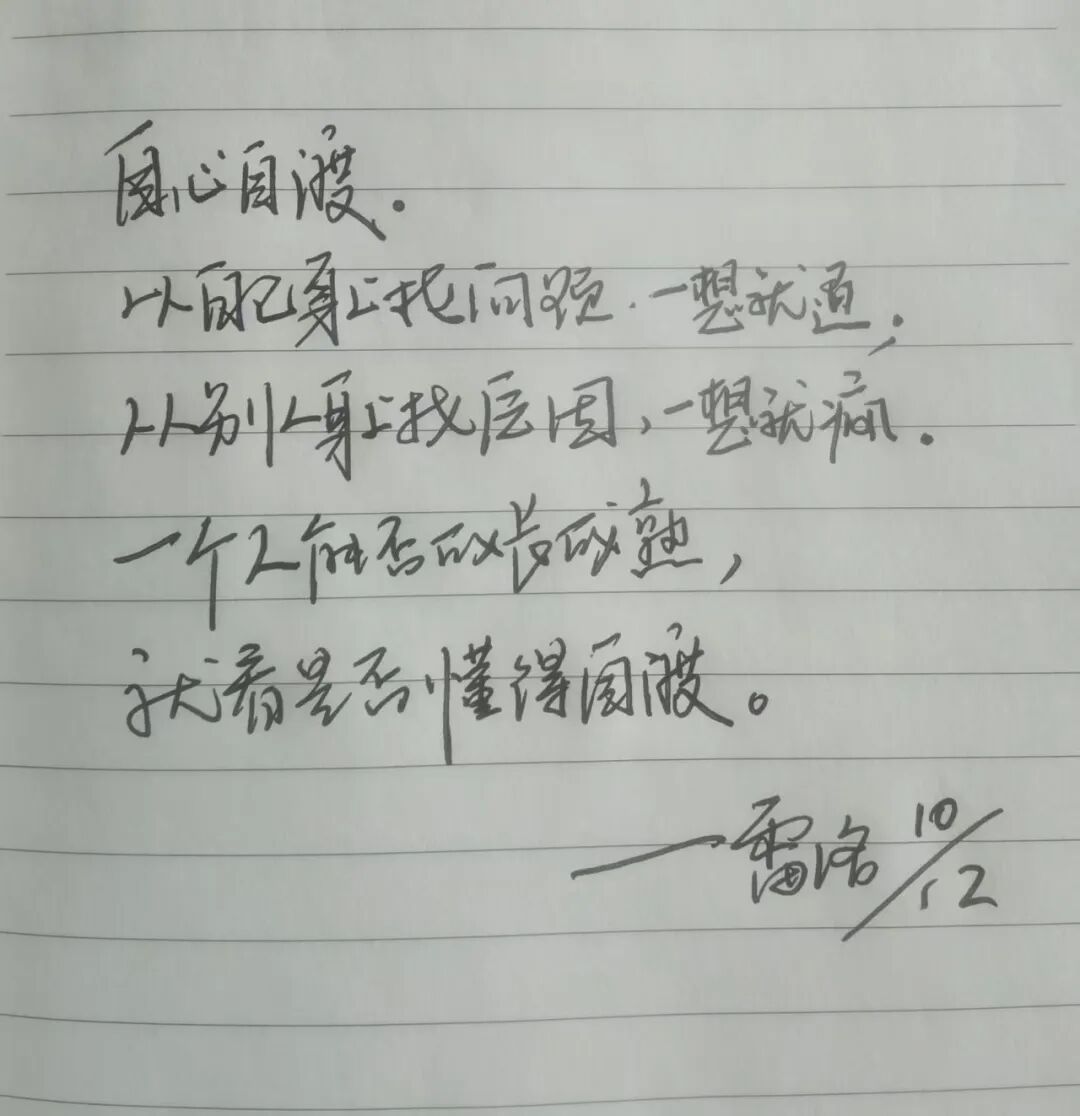 自心自渡.
从自己身上找问题.一想就通,
从别人身上找原因,一想就疯.
一个人能否成长成熟,
就看是否懂得自渡。
一雷洛 10/12